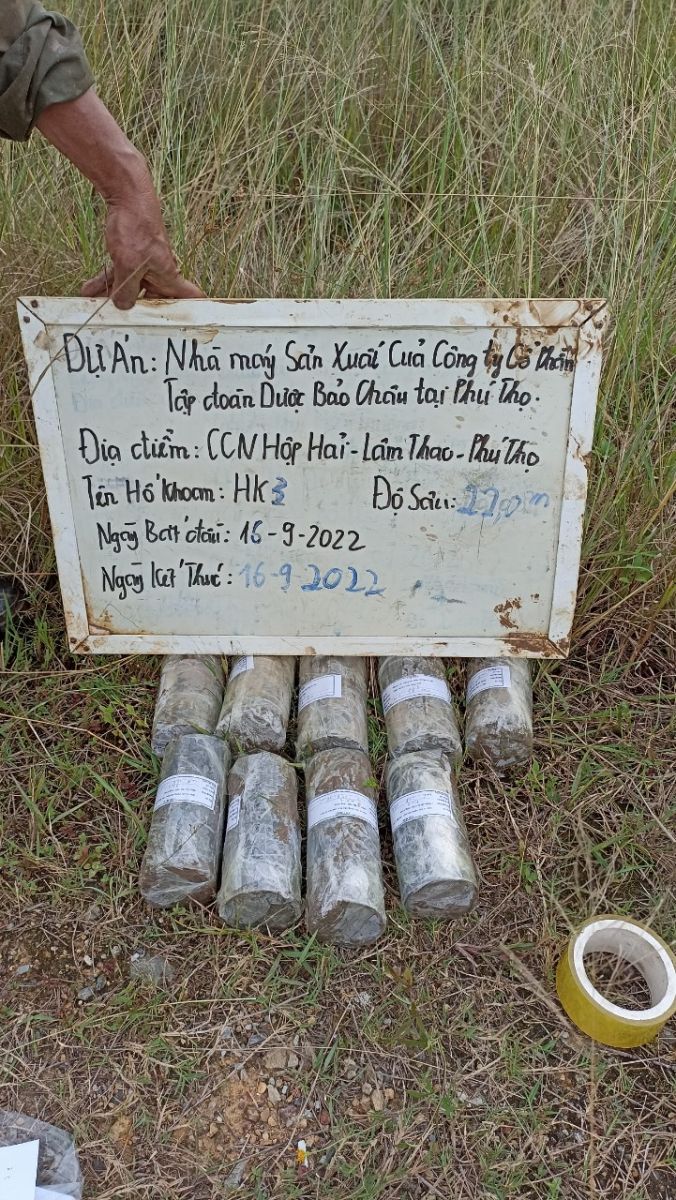 DỰ ÁN: Nhà máy Sản Xuất Của Công ty Cổ Phần
Tập đoàn Dược Bảo Châu tại Phú Thọ.
Địa điểm: CCN Hộp Hải - Lâm Thao - Phú Thọ
Tên Hố Khoan: HK3 Độ Sâu: 22,0m
Ngày Bắt đầu: 16-9-2022
Ngày Kết Thúc: 16-9-2022